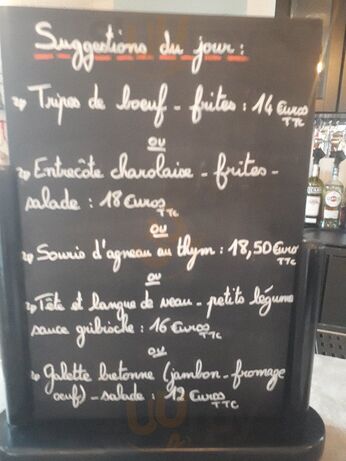 Suggestions du jour :
Tripes de boeuf - frites : 14 Euros
TTC
ou
Entrecôte charolaise - frites -
salade : 18 Euros
TTC
ou
Souris d'agneau au thym : 18,50 Euro
TTC
ou
Tête et langue de veau - petits légume
sauce gribiche : 16 Euros
TTC
ou
Galette bretonne (jambon - fromage
oeuf) - salade : 12 Euros
TTC